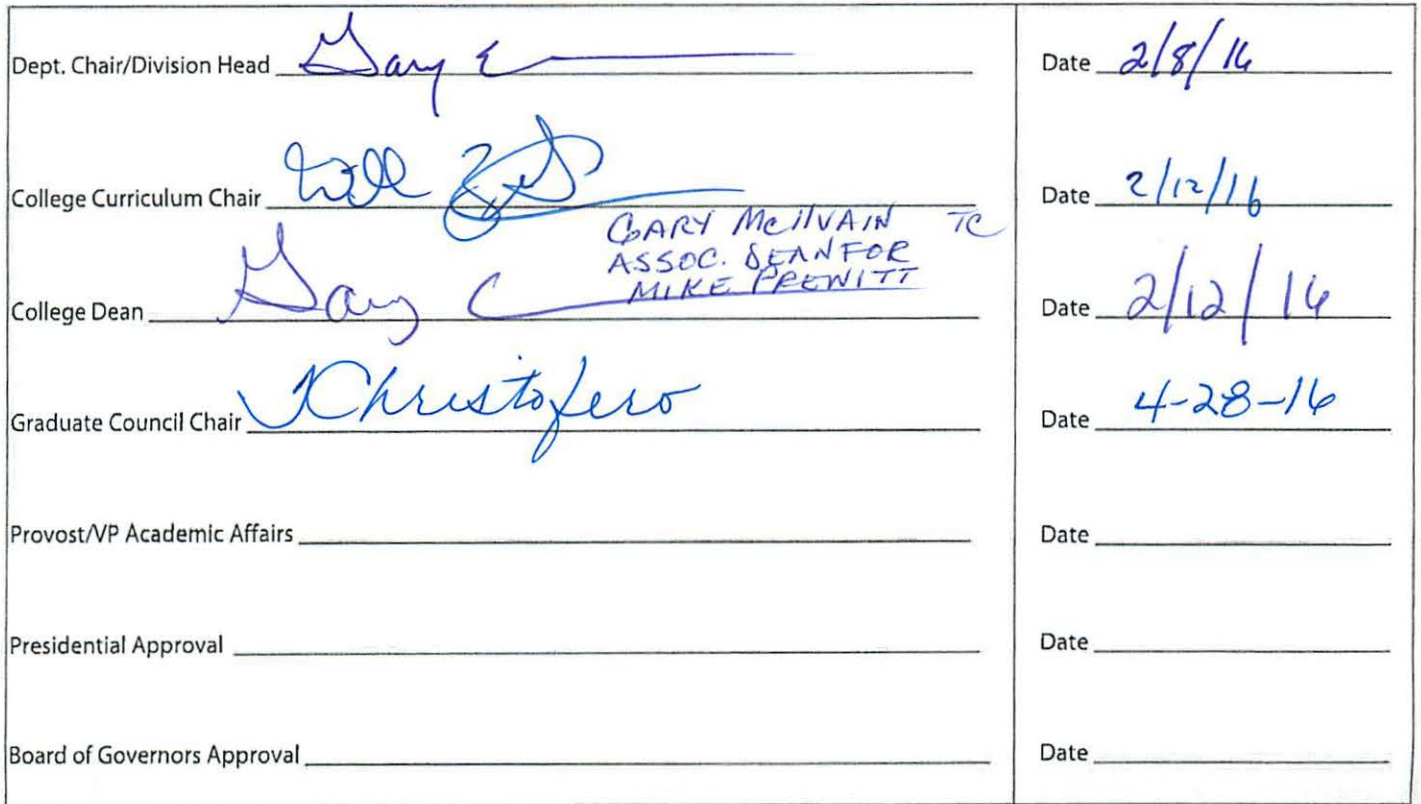 Dept. Chair/Division Head Gary E Date 2/8/16
College Curriculum Chair Will Date 2/12/16
GARY McIlVAIN TC
ASSOC. DEAN FOR
MIKE PREWITT
College Dean Gary C Date 2/12/16
Graduate Council Chair Christofero Date 4-28-16
Provost/VP Academic Affairs Date
Presidential Approval Date
Board of Governors Approval Date